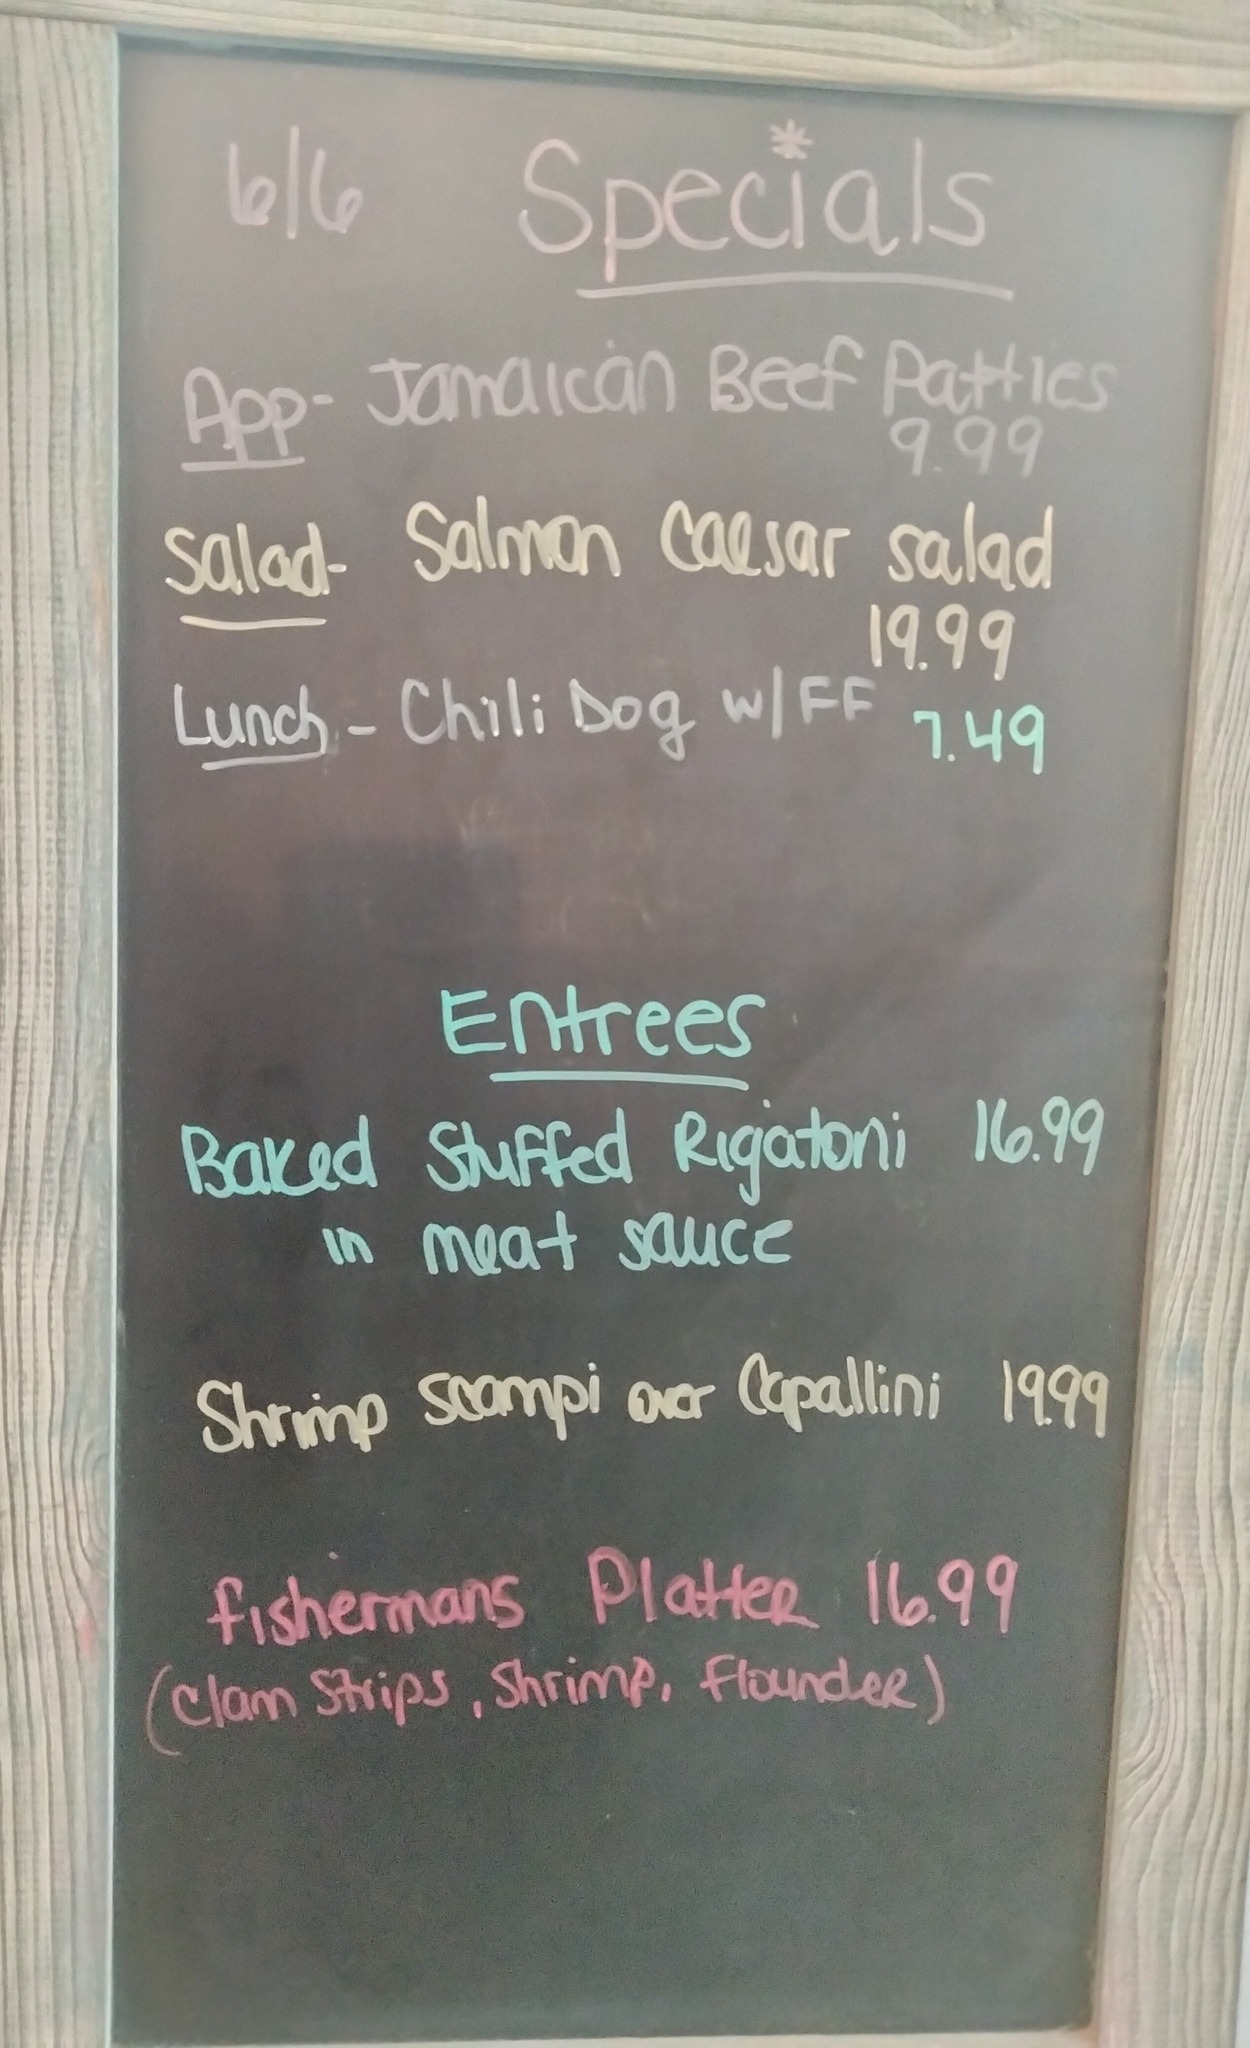 6/6 Specials
App- Jamaican Beef Patties
9.99
Salad- Salmon Caesar salad
19.99
Lunch - Chili Dog w/ FF 7.49
Entrees
Baked Stuffed Rigatoni 16.99
in meat sauce
Shrimp scampi over Capallini 19.99
fishermans Platter 16.99
(Clam Strips, Shrimp, Flounder)